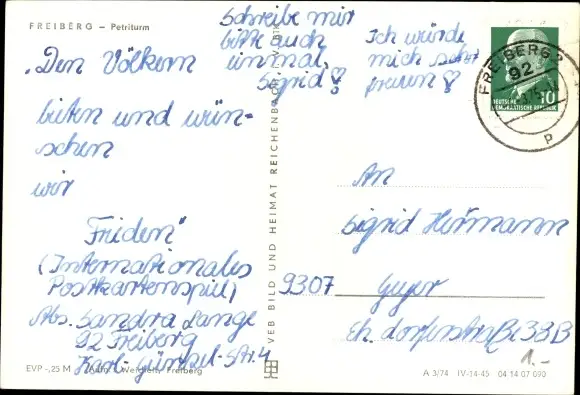 FREIBERG – Petriturm
Schreibe mir
bitte auch
einmal,
Sigrid!
Ich würde
mich sehr
freuen!
„Den Völkern
bieten und wün-
schen
wir
Frieden"
(Internationales
Postkartenspiel)
Abs. Sandra Lange
92 Freiberg
Karl-Günzel-Str. 4
EVP -,25 M
Freiberg
VEB BILD UND HEIMAT REICHENBACH
FREIBERG 2
92
P
DEUTSCHE
DEMOKRATISCHE REPUBLIK
10
An
Sigrid Hermann
9307 Geyer
Eh. 33B
1.-
A 3/74 IV-14-45 04 14 07 090